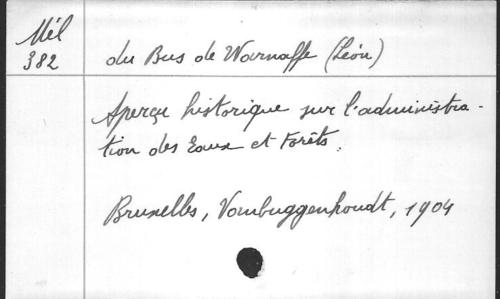 Mél
382
du Bus de Warnaffe (Léon)
Aperçu historique sur l'administra-
tion des Eaux et Forêts.
Bruxelles, Vombuggenhoudt, 1904